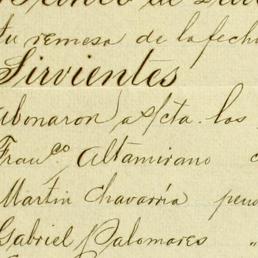 su remesa de la fech
Sirvientes
Abonaron a/cta. los
Franco Altamirano
Martin Chavarría pen
Gabriel Palomares "